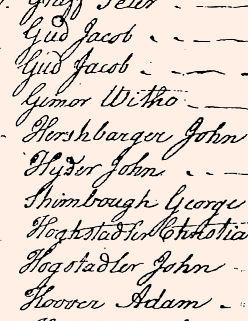 Graff Peter
Gud Jacob
Gud Jacob
Gimor Witho
Hershbarger John
Hyder John
Himbough George
Hoghstadler Christia
Hogstadler John
Hoover Adam